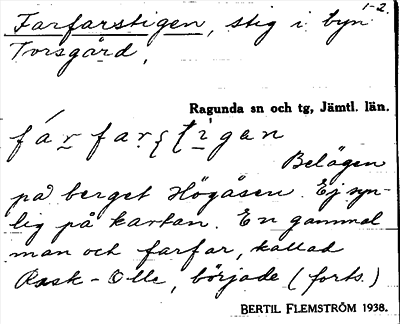 1-2.
Farfarstigen, stig i byn
Torsgård,
Ragunda sn och tg, Jämtl. län.
Belägen
på berget Högåsen. Ej syn-
lig på kartan. En gammal
man och farfar, kallad
Rask-Olle, började (forts.)
BERTIL FLEMSTRÖM 1938.